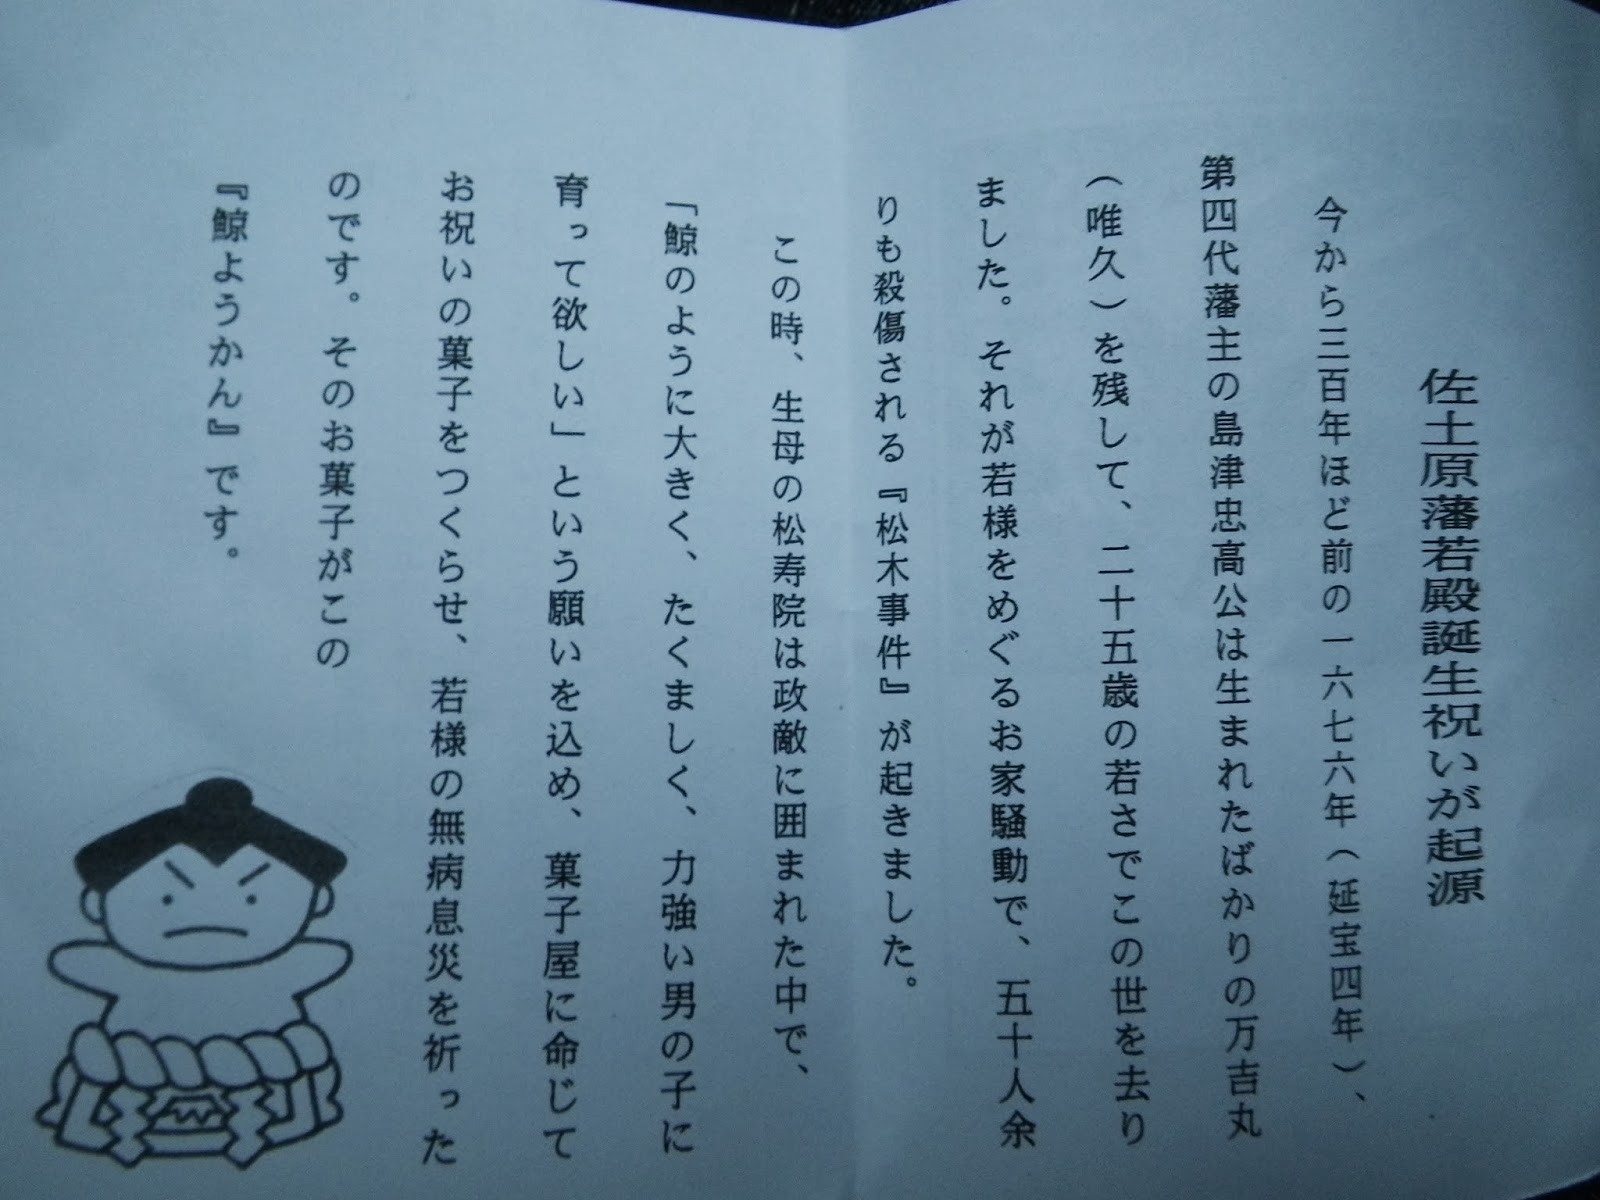 佐土原藩若殿誕生祝いが起源
今から三百年ほど前の一六七六年（延宝四年）、
第四代藩主の島津忠高公は生まれたばかりの万吉丸
（唯久）を残して、二十五歳の若さでこの世を去り
ました。それが若様をめぐるお家騒動で、五十人余
りも殺傷される『松木事件』が起きました。
この時、生母の松寿院は政敵に囲まれた中で、
「鯨のように大きく、たくましく、力強い男の子に
育って欲しい」という願いを込め、菓子屋に命じて
お祝いの菓子をつくらせ、若様の無病息災を祈った
のです。そのお菓子がこの
『鯨ようかん』です。